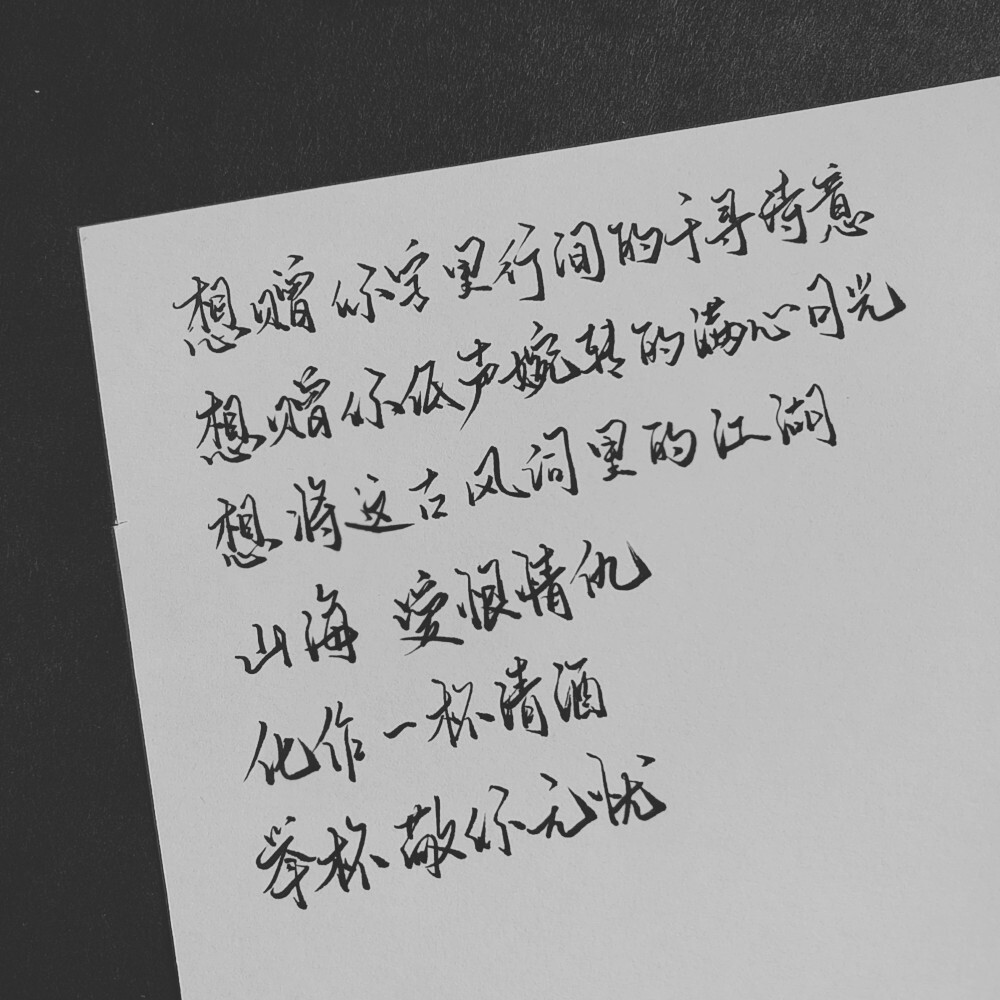 想赠你字里行间的千寻诗意
想赠你低声婉转的满心月光
想将这古风词里的江湖
山海 爱恨情仇
化作一杯清酒
举杯敬你无忧